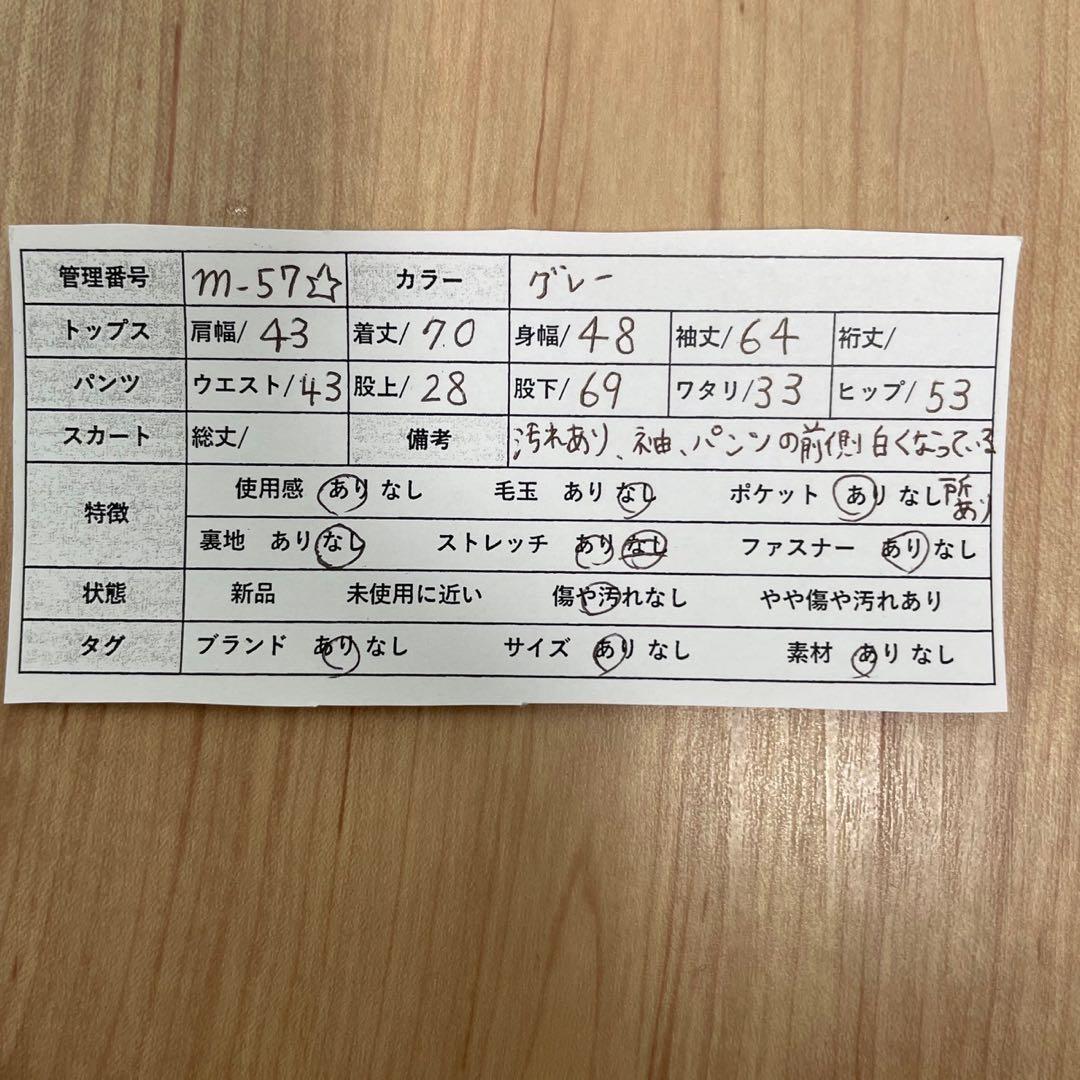 管理番号 m-57☆ カラー グレー
トップス 肩幅/43 着丈/70 身幅/48 袖丈/64 裄丈/
パンツ ウエスト/43 股上/28 股下/69 ワタリ/33 ヒップ/53
スカート 総丈/ 備考 汚れあり、袖、パンツの前側白くなっている
特徴 使用感 あり なし 毛玉 あり なし ポケット あり なし 所あり
裏地 あり なし ストレッチ あり なし ファスナー あり なし
状態 新品 未使用に近い 傷や汚れなし やや傷や汚れあり
タグ ブランド あり なし サイズ あり なし 素材 あり なし